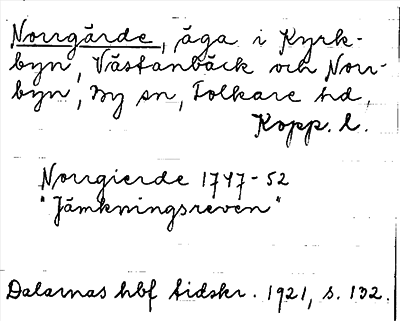 Norrgärde, äga i Kyrk-
byn, Västanbäck och Norr-
byn, By sn, Folkare hd,
Kopp. l.
Norrgierde 1747-52
"Jämkningsreven"
Dalarnas hbf tidskr. 1921, s. 132.